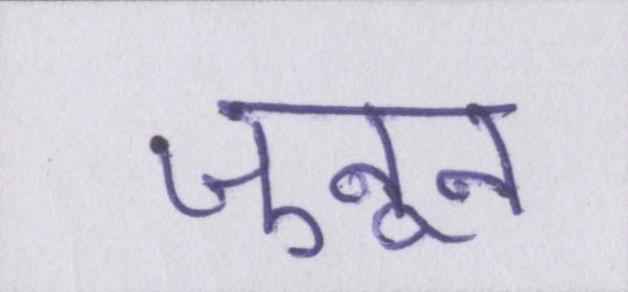 जुनून